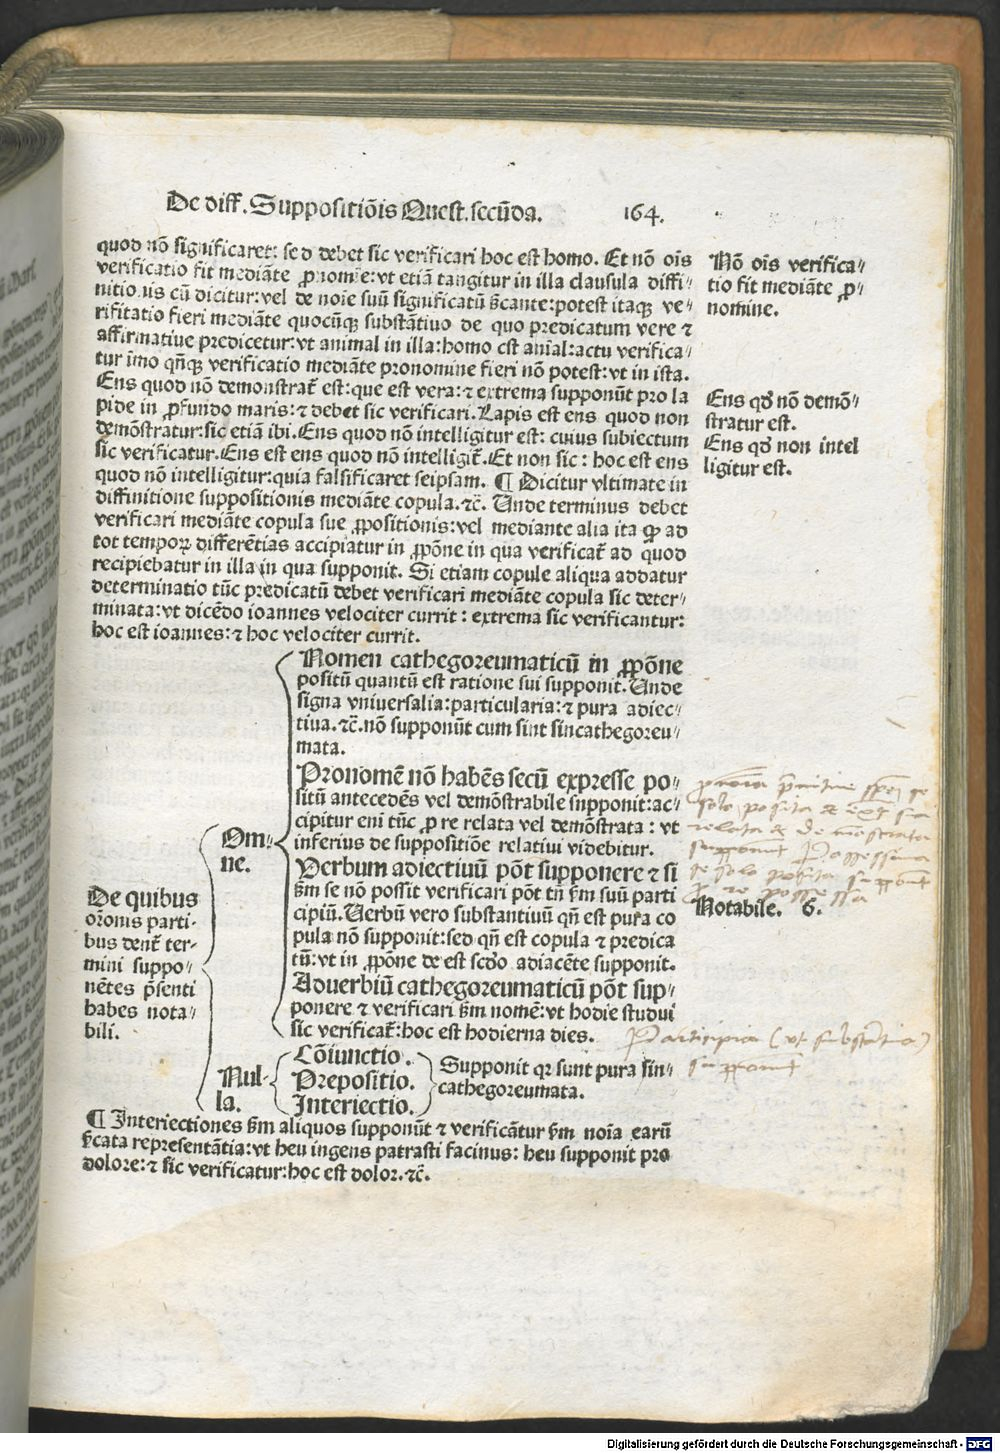 De diff. Suppositiõis Quest. secũda. 164.
quod nõ significaret: sed debet sic verificari hoc est homo. Et nõ oĩs
verificatio fit mediãte ꝓnomie: vt etiã tangitur in illa clausula diffi⸗
nitionis cũ dicitur: vel de noĩe suũ significatũ s̃cante: potest itaqꝫ ve⸗
rifitatio fieri mediãte quocũqꝫ substãtiuo de quo predicatum vere ⁊
affirmatiue predicetur: vt animal in illa: homo est anĩal: actu verifica⸗
tur ĩmo qñqꝫ verificatio mediãte pronomine fieri nõ potest: vt in ista.
Ens quod nõ demonstrat̃ est: que est vera: ⁊ extrema supponũt pro la
pide in ꝓfundo maris: ⁊ debet sic verificari. Lapis est ens quod non
demõstratur: sic etiã ibi. Ens quod nõ intelligitur est: cuius subiectum
sic verificatur. Ens est ens quod nõ intelligit̃. Et non sic: hoc est ens
quod nõ intelligitur: quia falsificaret seipsam. ¶ Dicitur vltimate in
diffinitione suppositionis mediãte copula. ⁊c̃. Unde terminus debet
verificari mediãte copula sue ꝓpositionis: vel mediante alia ita ꝙ ad
tot tempoꝝ differẽtias accipiatur in ꝓpõne in qua verificat̃ ad quod
recipiebatur in illa in qua supponit. Si etiam copule aliqua addatur
determinatio tũc predicatũ debet verificari mediãte copula sic deter⸗
minata: vt dicẽdo ioannes velociter currit: extrema sic verificantur:
hoc est ioannes: ⁊ hoc velociter currit.
Nõ oĩs verifica⸗
tio fit mediãte ꝓ⸗
nomine.
Ens qđ nõ demõ⸗
stratur est.
Ens qđ non intel
ligitur est.
De quibus
orõnis parti⸗
bus dent̃ ter⸗
mini suppo⸗
nẽtes p̃senti
habes nota⸗
bili.
Om⸗
ne.
Nomen cathegoreumaticũ in ꝓpõne
positũ quantũ est ratione sui supponit. Unde
signa vniuersalia: particularia: ⁊ pura adiec⸗
tiua. ⁊c̃. nõ supponũt cum sint sincathegoreu⸗
mata.
Pronomẽ nõ habẽs secũ expresse po⸗
sitũ antecedẽs vel demõstrabile supponit: ac⸗
cipitur enĩ tũc ꝓ re relata vel demõstrata: vt
inferius de suppositiõe relatiui videbitur.
Verbum adiectiuũ põt supponere ⁊ si
s̃m se nõ possit verificari põt tñ s̃m suũ parti
cipiũ. Uerbũ vero substantiuũ qñ est pura co
pula nõ supponit: sed qñ est copula ⁊ predica
tũ: vt in ꝓpõne de est scđo adiacẽte supponit.
Aduerbiũ cathegoreumaticũ põt sup⸗
ponere ⁊ verificari s̃m nomẽ: vt hodie studui
sic verificat̃: hoc est hodierna dies.
Nul⸗
la.
Cõiunctio.
Prepositio.
Interiectio.
Supponit qꝛ sunt pura sin⸗
cathegoreumata.
relata & demostrata
supponunt Possessiua
se solo posita supponũt
ꝓ re possessa
Notabile. 6.
Participia (vt substãtiua)
supponunt
¶ Interiectiones s̃m aliquos supponũt ⁊ verificãtur s̃m noĩa earũ
s̃cata representãtia: vt heu ingens patrasti facinus: heu supponit pro
dolore: ⁊ sic verificatur: hoc est dolor. ⁊c̃.
Digitalisierung gefördert durch die Deutsche Forschungsgemeinschaft - DFG